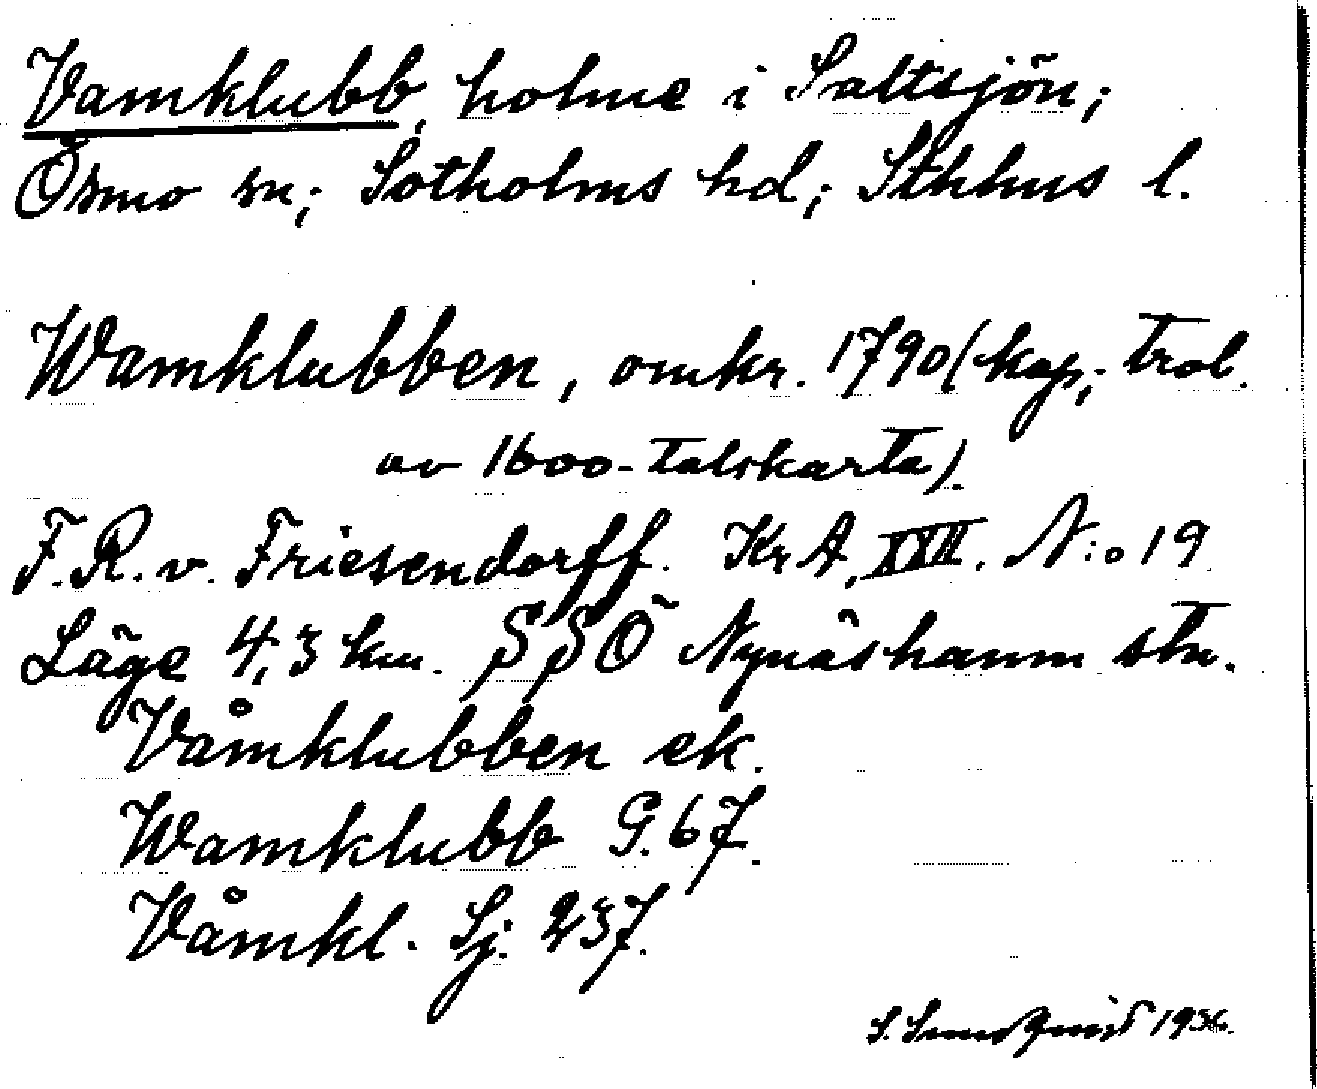 Vamklubb, holme i Saltsjön;
Ösmo sn; Sotholms hd; Sthlms l.
Wamklubben, omkr. 1790 (kop; trol.
av 1600-talskarta).
F.R. v. Friesendorff. Kr A, XXII. N:o 19
Läge 4,3 km. SSÖ Nynäshamn stn.
Våmklubben ek.
Wamklubb G. 67.
Våmkl. Sj. 237.
S. 1936.